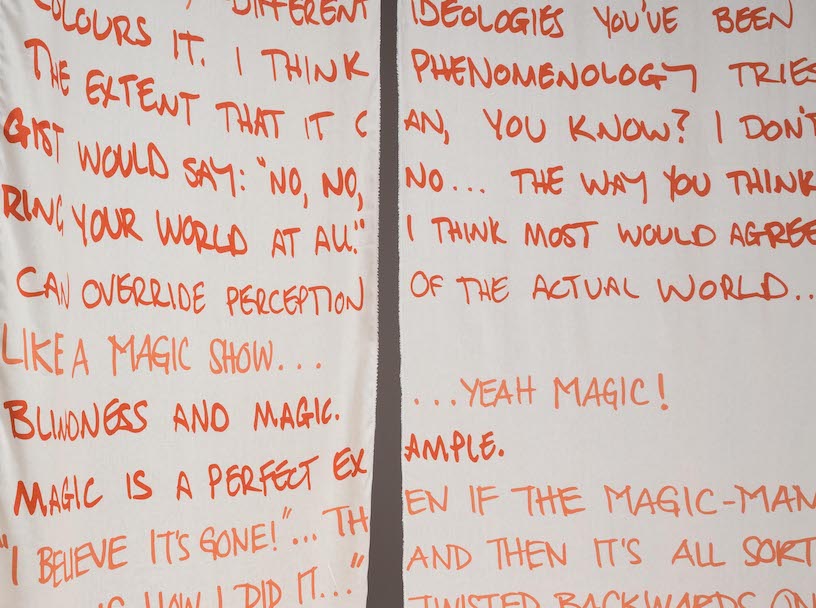 DIFFERENT IDEOLOGIES YOU'VE BEEN
COLOURS IT. I THINK PHENOMENOLOGY TRIES
THE EXTENT THAT IT CAN, YOU KNOW? I DON'T
GIST WOULD SAY: "NO, NO, NO... THE WAY YOU THINK
RING YOUR WORLD AT ALL." I THINK MOST WOULD AGREE
CAN OVERRIDE PERCEPTION OF THE ACTUAL WORLD...
LIKE A MAGIC SHOW... ...YEAH MAGIC!
BLINDNESS AND MAGIC.
MAGIC IS A PERFECT EXAMPLE.
"I BELIEVE IT'S GONE!"... THEN IF THE MAGIC-MAN
IS HOW I DID IT..." AND THEN IT'S ALL SORT
TWISTED BACKWARDS ON